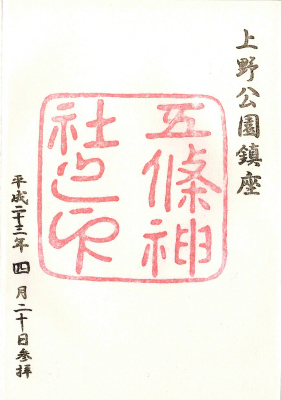 上野公園鎮座
五條神
社之印
平成二十三年四月二十日参拝